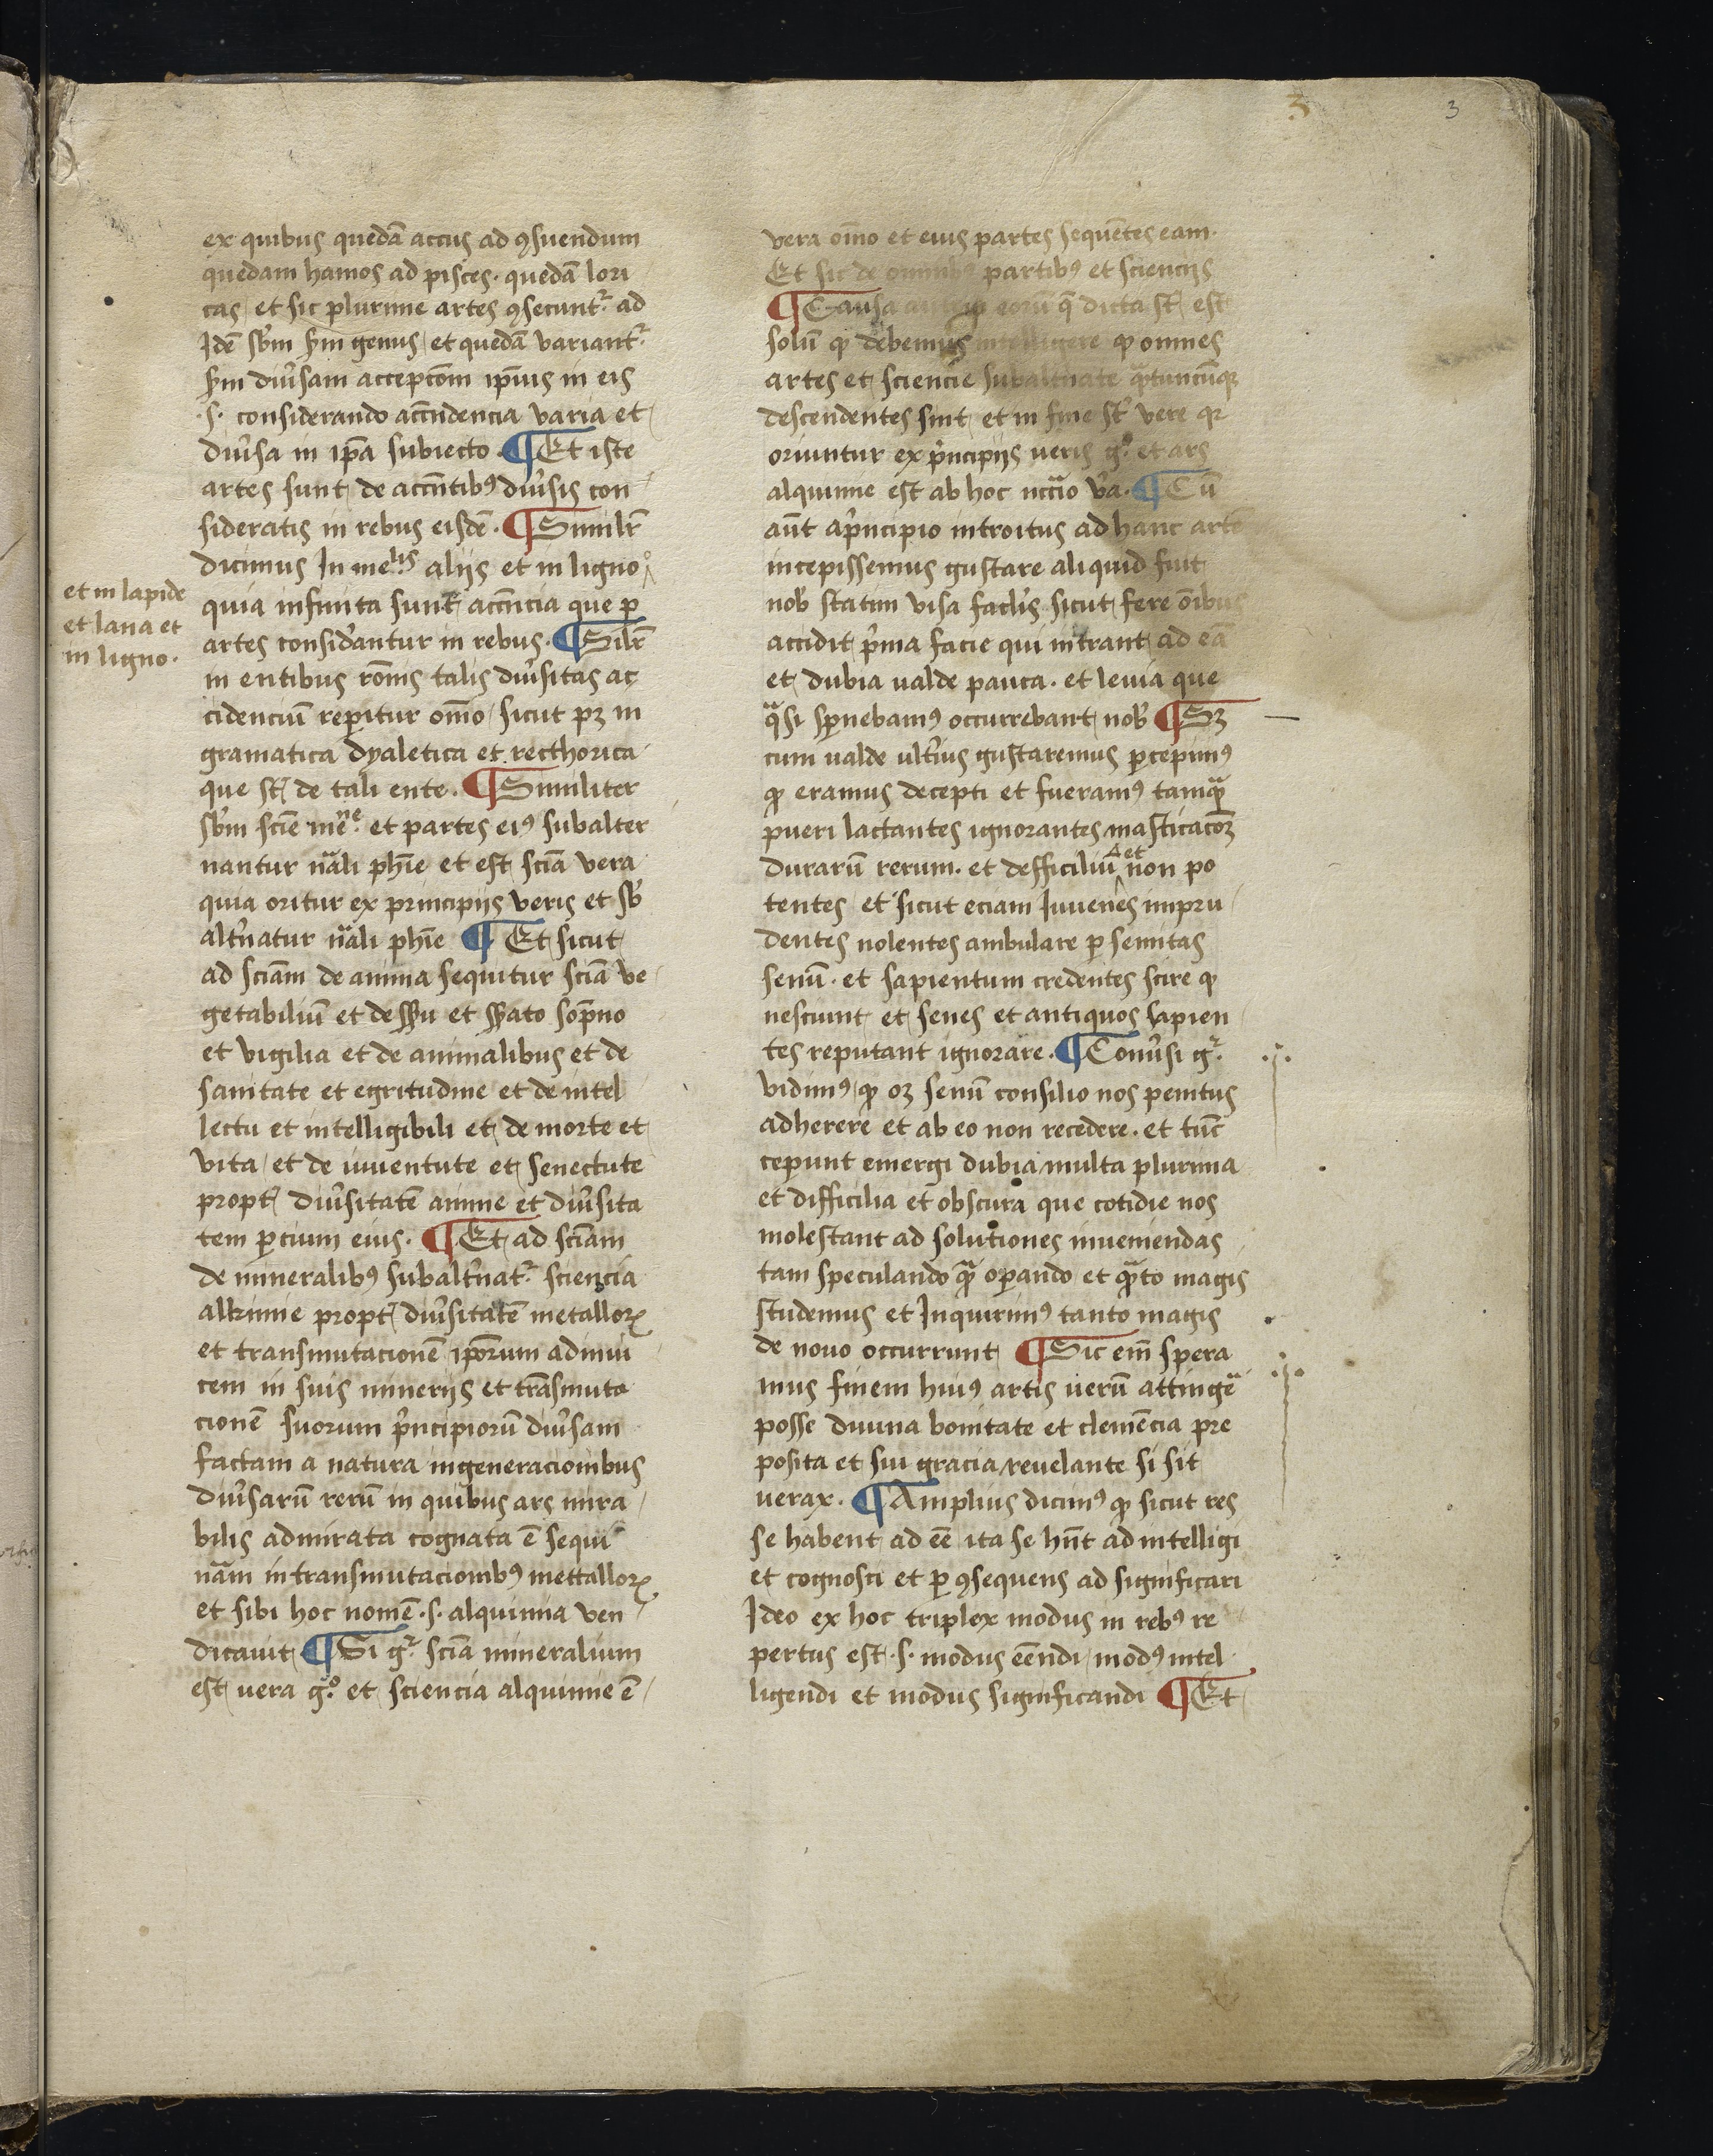 3
3
ex quibus quedã accus ad ꝯsuendum
quedam hamos ad pisces· quedã lori
cas / et sic plurime artes ꝯsecuntʳ ad
Idẽ sb̃m sm̃ genus / et quedã variantʳ
sm̃ diũsam accepcõm ip̃ius in eis
·s· considerando accñdencia varia et
diũsa in ip̃a subiecto · ¶ Et iste
artes sunt de accñtibꝰ diũsis con
sideratis in rebus eisdẽ · ¶ Similr̃
dicimus In meˡⁱˢ alijs et in ligno
et in lapide
et lana et
in ligno·
quia infinita sunt accñcia que p
artes considãntur in rebus · ¶ Silr̃
in entibus rõnis talis diũsitas ac
cidenciũ reperitur om̃o / sicut pꝫ in
gramatica dyaletica et recthorica
que st̃ de tali ente · ¶ Similiter
sb̃m scie mẽⁿᵉ · et partes eiꝰ subalter
nantur nãli phĩe et est sciã vera
quia oritur ex principijs veris et sb̃
alt̃natur nãli phĩe ¶ Et sicut
ad sciãm de anima sequitur sciã ve
getabiliũ et de ssũ et ssãto sop̃no
et vigilia et de animalibus et de
sanitate et egritudine et de intel
lectu et intelligibili et de morte et
vita / et de iuuentute et senectute
propt̃ diũsitatẽ anime et diũsita
tem ꝑcium eius · ¶ Et ad sciãm
de mineralibꝰ subalt̃natʳ sciencia
alkimie propt̃ diũsitatẽ metalloꝝ
et transmutacionẽ ip̃orum adinui
cem in suis minerijs et trãsmuta
cionẽ suorum p̃ncipiorũ diũsam
factam a natura ingeneracionibus
diũsarũ rerũ in quibus ars mira
bilis admirata cognata ẽ sequi
nãm in transmutacionibꝰ mettalloꝝ
et sibi hoc nomẽ ·s· alquimia ven
dicauit ¶ Si gʳ sciã mineralium
est vera gᵒ et sciencia alquimie ẽ
vera om̃o et eius partes sequẽtes eam·
Et sic de omnibꝰ partibꝰ et sciencijs
¶ Causa eorũ q̃ dicta st̃ est
solũ ꝙ debemus intelligere ꝙ omnes
artes et sciencie subalt̃nate q̃ꝫtuncũqꝫ
descendentes sint et in fine st̃ vere qꝛ
oriuntur ex p̃ncipijs ueris gᵒ et ars
alquimie est ab hoc nccãio v̾a · ¶ Cũ
aũt ap̃ncipio introitus ad hanc artẽ
incepissemus gustare aliquid fuit
nob̾ statim visa facil̾s sicut fere õibus
accidit p̃ma facie qui intrant ad eã
et dubia ualde pauca · et leuia que
q̃si sp̃nebamꝰ occurrebant nob̾ ¶ Sꝫ
cum ualde ult̾ius gustaremus ꝑcepimꝰ
ꝙ eramus decepti et fueramꝰ tamqꝫ̃
pueri lactantes ignorantes masticacõꝫ
durarũ rerum · et defficiliũ et non po
tentes / et sicut eciam Iuuenes impru
dentes nolentes ambulare ꝑ semitas
senũ · et sapientum credentes scire ꝙ
nesciunt et senes et antiquos sapien
tes reputant ignorare · ¶ Conũsi gʳ
vidimꝰ ꝙ oꝫ senũ consilio nos penitus
adherere et ab eo non recedere · et tũc
cepunt emergi dubia multa plurima
et difficilia et obscura que cotidie nos
molestant ad solutiones inueniendas
tam speculando qꝫ̃ oꝑando et qꝫ̃to magis
studemus et Inquirimꝰ tanto magis
de nouo occurrunt ¶ Sic em̃ spera
mus finem huiꝰ artis uerũ attingẽ
posse diuina bonitate et clemẽcia pre
posita et sui gracia reuelante si sit
uerax · ¶ Amplius dicimꝰ ꝙ sicut res
se habent ad eẽ ita se hñt ad intelligi
et cognosci et ꝑ ꝯsequens ad significari
Ideo ex hoc triplex modus in rebꝰ re
pertus est ·s· modus eẽndi / modꝰ intel
ligendi et modus significandi ¶ Et